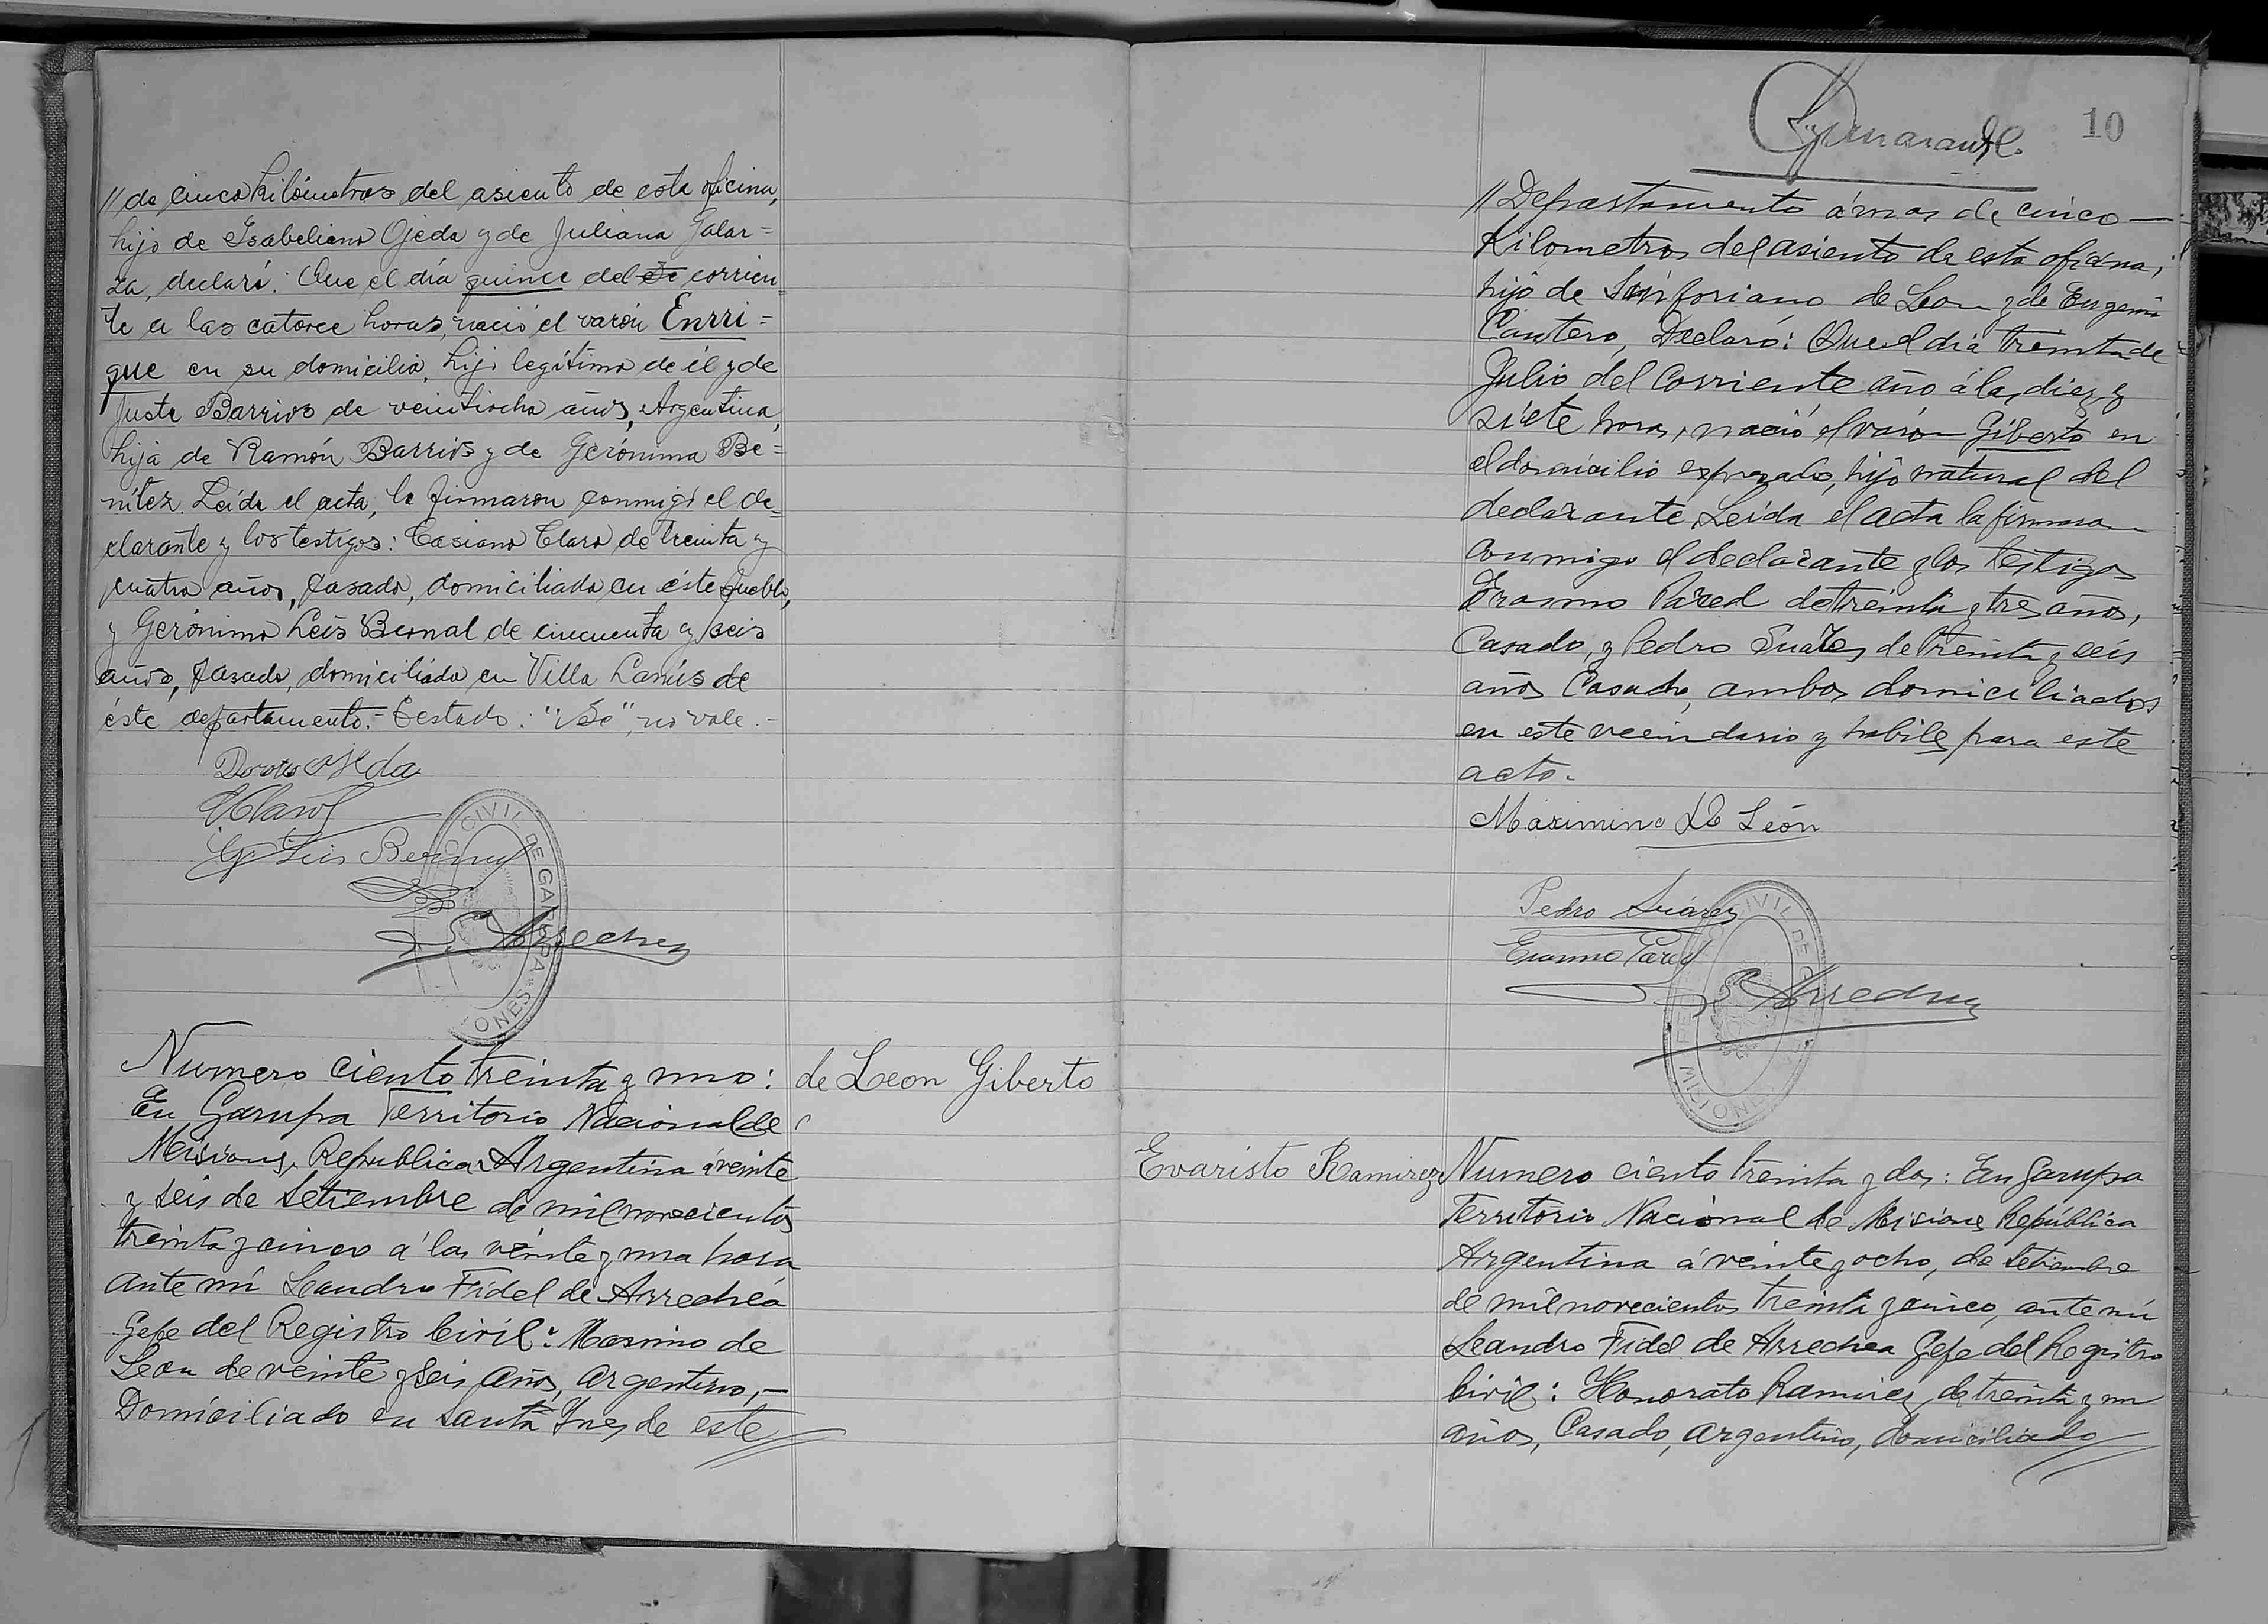 // de cinco kilómetros del asiento de esta oficina,
hijo de Isabeliano Ojeda y de Juliana Galar=
za, declaró: Que el día quince del corrien=
te a las catorce horas, nació el varón Enrri=
que en su domicilio, hijo legítimo de él y de
Justa Barrios de veintiocho años, Argentina,
hija de Ramón Barrios y de Gerónima Be=
nítez. Leída el acta, la firmaron conmigo el de=
clarante y los testigos: Casiano Claro de treinta y
cuatro años, casado, domiciliado en éste pueblo,
y Gerónimo Leis Bernal de cincuenta y seis
años, casado, domiciliado en Villa Lanús de
éste departamento.- Testado: no vale.-
Ojeda
Claro
G. Leis Bernal
Arrechea
CIVIL DE GARUPA
Numero ciento treinta y uno:
de Leon Giberto
En Garupa Territorio Nacional de
Misiones, Republica Argentina á veinte
y seis de Setiembre de mil novecientos
treinta y cinco á las veinte y una hora
ante mi Leandro Fidel de Arrechea
Gefe del Registro Civil: Maximo de
Leon de veinte y seis años, argentino,-
Domiciliado en Santa Ines de este //
10
// Departamento á mas de cinco -
Kilometros del asiento de esta oficina,
hijo de Sinforiano de Leon y de Eugenia
Cantero, Declaró: Que el dia treinta de
Julio del Corriente año á las diez y
siete horas, nació el varón Giberto en
el domicilio expresado, hijo natural del
declarante, Leida el acta la firmaron
conmigo el declarante y los testigos
Erasmo Pared de treinta y tres años,
Casado, y Pedro Suarez de treinta y seis
años Casado, ambos domiciliados
en este vecindario y habiles para este
acto.
Maximino de León
Pedro Suárez
Erasmo Pared
Arrechea
CIVIL DE
Evaristo Ramirez
Numero ciento treinta y dos: En Garupa
Territorio Nacional de Misiones República
Argentina á veinte y ocho, de Setiembre
de mil novecientos treinta y cinco, ante mi
Leandro Fidel de Arrechea Gefe del Registro
Civil: Honorato Ramirez, de treinta y un
años, Casado, argentino, domiciliado //